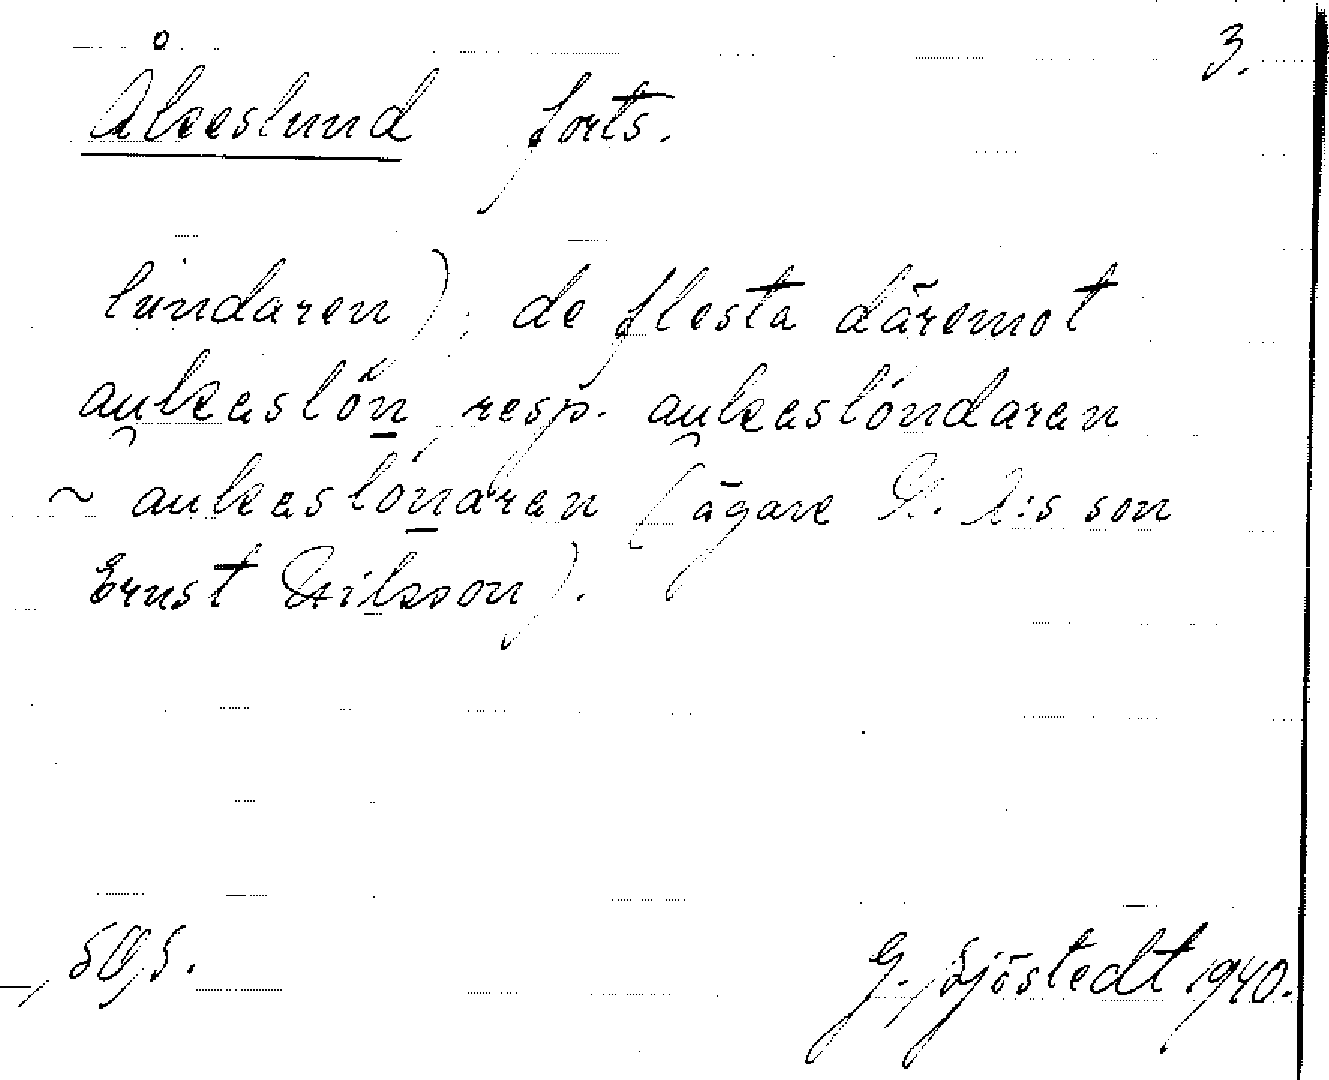 3.
Åkeslund forts.
lundaren); de flesta däremot
aukaslön, resp. aukaslöndaren
~ aukaslönaren (ägare N. A:s son
Ernst Nilsson).
G. Sjöstedt 1940.